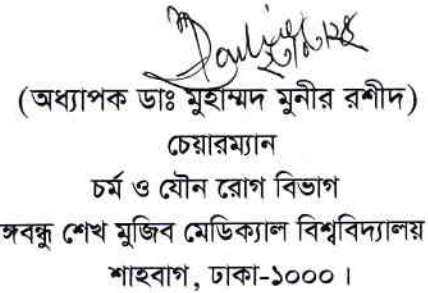 (অধ্যাপক ডাঃ মুহাম্মদ মুনীর রশীদ)
চেয়ারম্যান
চর্ম ও যৌন রোগ বিভাগ
ঙ্গবন্ধু শেখ মুজিব মেডিক্যাল বিশ্ববিদ্যালয়
শাহবাগ, ঢাকা-১০০০।